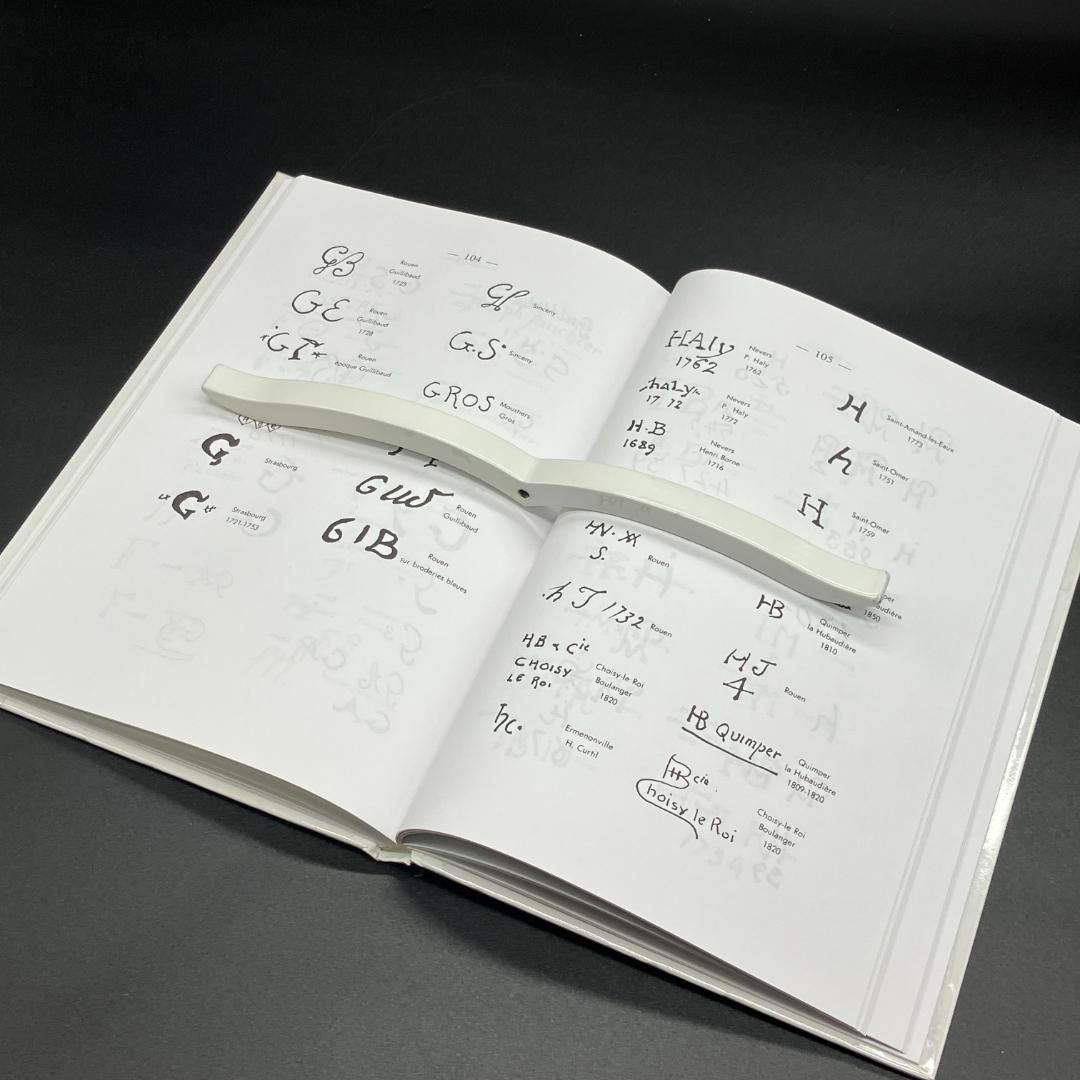 — 104 —
GB
Rouen
Guillibaud
1725
GE
Rouen
Guillibaud
1728
GT
Rouen
époque Guillibaud
G
Strasbourg
G
Strasbourg
1721-1753
Sinceny
G.S.
Sinceny
GROS
Moustiers
Gros
Rouen
Guillibaud
GIB
Rouen
sur broderies bleues
— 105 —
HALY
1762
Nevers
P. Haly
1762
haly
1772
Nevers
P. Haly
1772
H.B
1689
Nevers
Henri Borne
1716
S.
Rouen
h T 1732
Rouen
HB & Cie
CHOISY
LE ROI
Choisy-le Roi
Boulanger
1820
hc.
Ermenonville
H. Curtil
H
Saint-Amand-les-Eaux
1773
h
Saint-Omer
1751
H
Saint-Omer
1759
1850
HB
Quimper
la Hubaudière
1810
HJ
4
Rouen
HB Quimper
Quimper
la Hubaudière
1809-1820
HB cie.
Choisy le Roi
Choisy-le Roi
Boulanger
1820